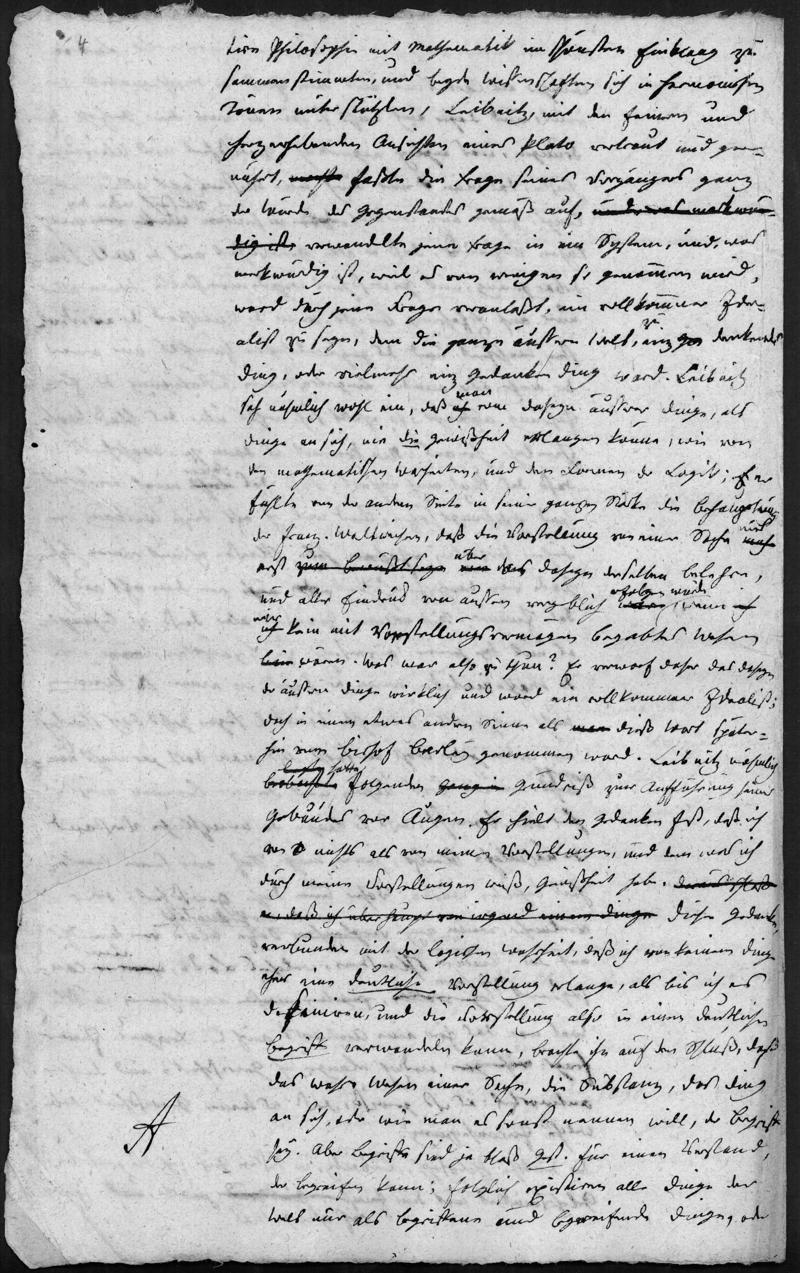 4
tiven Philosophie mit Mathematik im schönsten Einklang zu
sammenstimmten, und beyde Wissenschaften sich in harmonischen
Tönen unterstützten, Leibnitz, mit den feinern und
herzerhebenden Ansichten eines Plato vertraut und gen-
nährt, faßte die Frage seines Vorgängers ganz
der Würde des Gegenstandes gemäß auf, und was merkwür-
dig ist verwandelte jene Frage in ein System, und, was
merkwürdig ist, weil es von wenigen so genommen wird,
ward durch jene Frage veranlaßt, ein vollkommner Idea-
list zu seyn, dem die ganze äussere Welt, zu denkendes
Ding, oder vielmehr ein Gedankending ward. Leibnitz
sah nähmlich wohl ein, daß man vom Daseyn äusserer Dinge, als
Dinge an sich, nie die Gewißheit erlangen könne, wie von
den mathematischen Warheiten, und den Formen der Logik; Er
fühlte von der andern Seite in seiner ganzen Stärke die Behauptung
der franz. Weltweisen, daß die Vorstellung von einer Sache uns
erst zum Bewußtseyn über das Daseyn derselben belehre,
und aller Eindruck von aussen vergeblich erfolgen würde, wenn
wir kein mit Vorstellungsvermögen begabtes Wesen
wären. Was war also zu thun? Er verwarf daher das Daseyn
der äussern Dinge wirklich und ward ein vollkommner Idealist;
doch in einem etwas andern Sinne als man dieß Wort später-
hin vom Bischof Berkley genommen ward. Leibnitz nähmlich
hatte folgenden Grundriß zur Aufführung seines
Gebäudes vor Augen. Er hielt den Gedanken fest, daß ich
von nichts als von meinen Vorstellungen, und dem was ich
durch meine Vorstellungen weiß, Gewißheit habe.
daß ich überhaupt von irgend einem Dinge Dieser Gedanke,
verbunden mit der logischen Wahrheit, daß ich von keinem Dinge
eher eine deutliche Vorstellung erlange, als bis ich es
definiren, und die Vorstellung also in einen deutlichen
Begriff verwandeln kann, brachte ihn auf den Schluß, daß
das wahre Wesen einer Sache, die Substanz, das Ding
an sich, oder wie man es sonst nennen will, der Begriff
sey. Aber Begriffe sind ja bloß für einen Verstand,
der begreifen kann; folglich existiren alle Dinge der
Welt nur als begriffene und begreifende Dinge, oder
A